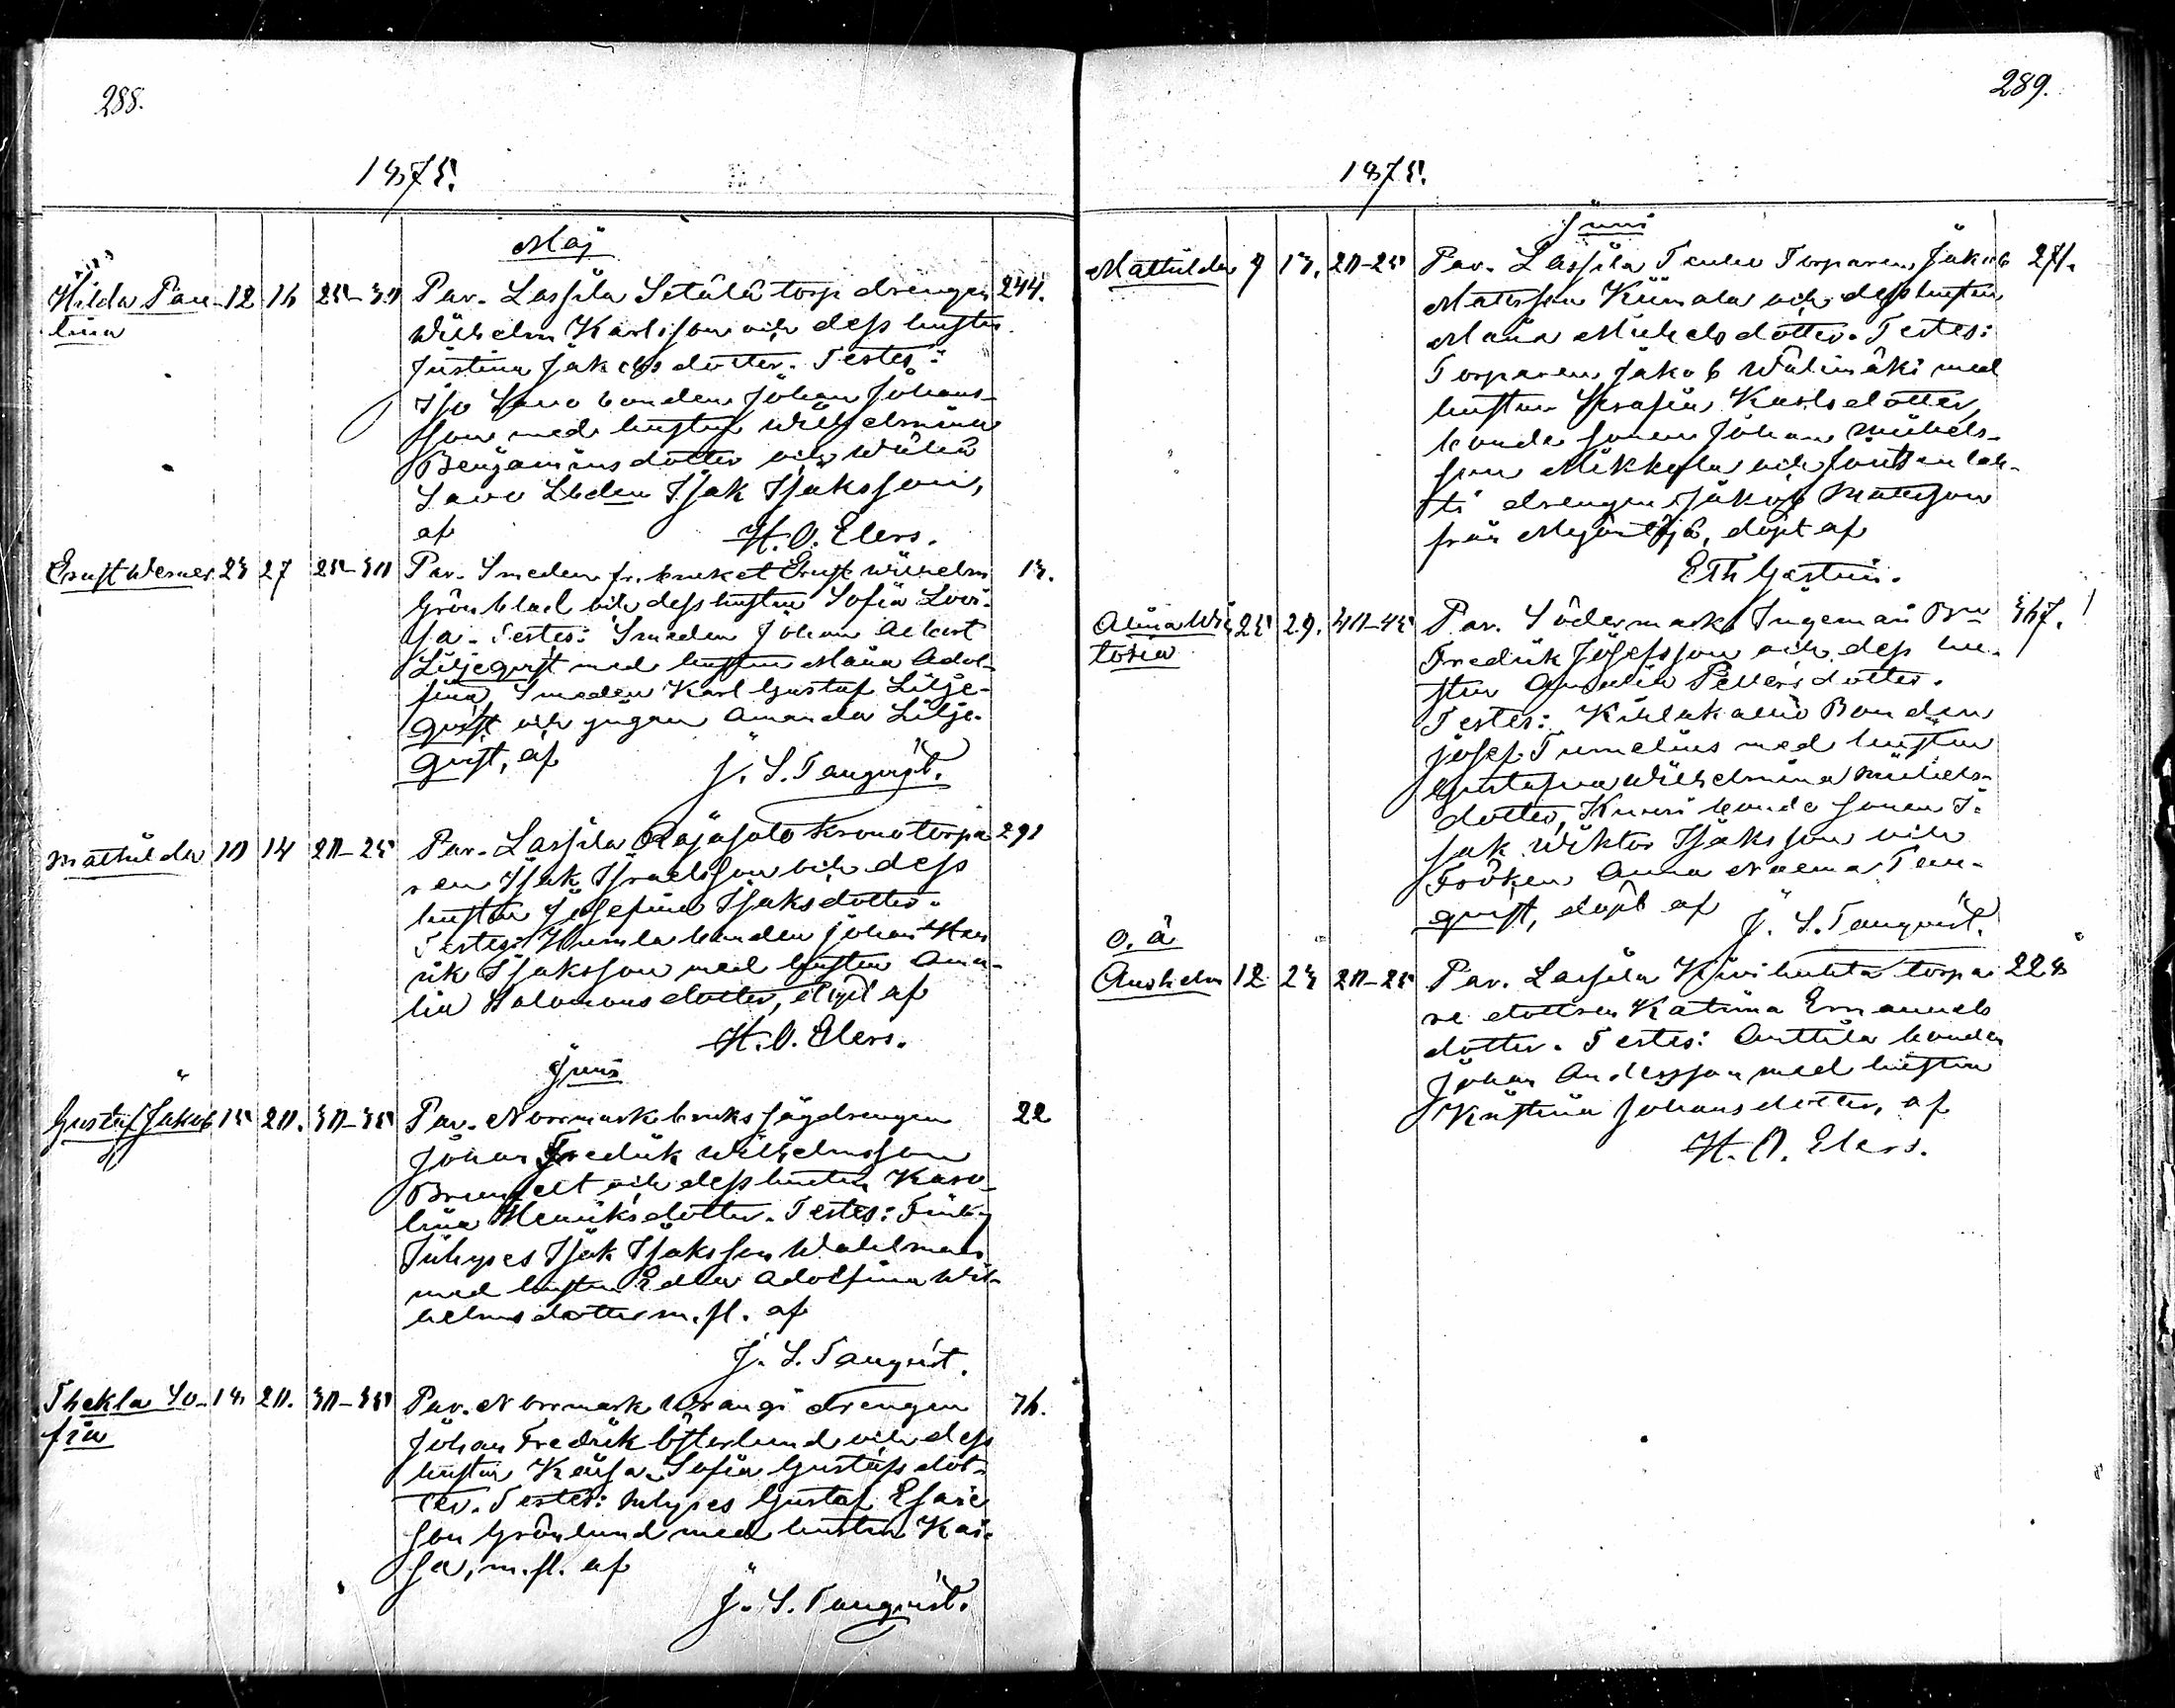 288.
1875.
Maj
Hilda Pau- 12 16 25-30 Par. Lassila Setälä torp drengen 244.
lina Wilhelm Karlsson och dess hustru
Justina Jakobsdotter. Testes:
Iso Savo bonden Johan Johans-
son med hustru Wilhelmina
Benjaminsdotter och Wäha
Savo Ldbden Isak Isaksson,
af H. O. Elers.
Ernst Werner 23 27 25-30 Par. Smeden fr. bruket Ernst Wilhelm 13.
Grönblad och dess hustru Sofia Lovi-
sa. Testes: Smeden Johan Albert
Liljeqvist med hustru Maria Adol-
fina, Smeden Karl Gustaf Lilje-
qvist och pigan Amanda Lilje-
qvist, af J. S. Tanqvist.
Mathilda 10 14 20-25 Par. Lassila Rajasalo Kronotorpa- 291
ren Isak Israelsson och dess
hustru Josefina Isaksdotter.
Testes: Humla bonden Johan Hen
rik Isaksson med hustru Ama-
lia Salomonsdotter, döpt af
H. O. Elers.
Juni
Gustaf Jakob 15 20. 30-35 Par. Norrmark bruks sågdrengen 22
Johan Fredrik Wilhelmsson
och dess hustru Karo-
lina Henriksdotter. Testes:
Inhyses Isak Isaksson Wahlman
med hustru Edla Adolfina Wil-
helmsdotter m. fl. af
J. S. Tanqvist.
Thekla So- 18 20. 30-35 Par. Norrmark Wrangi drengen 76.
fia Johan Fredrik Österlund och dess
hustru Kajsa Sofia Gustafsdot-
ter. Testes: Inhyses Gustaf Esaie
son Grönlund med hustru Kai-
sa, m. fl. af
J. S. Tanqvist.
289.
1875.
Juni
Mathilda 9 13. 20-25 Par. Lassila Torparen Jakob 271.
Matsson och dess hustru
Maria Michelsdotter. Testes:
Torparen Jakob Wälimäki med
hustru Serafia Karlsdotter,
bonde sonen Johan Michels-
son Mikkola och Joutsenlah-
ti drengen Jakob Mattsson
från, döpt af
E Th Gestrin.
Alina Wic 25 29. 40-45 Par. Södermark Ingemari Bn 367.
toria Fredrik Josefsson och dess hu-
stru Amalia Pettersdotter.
Testes: Kihlakallio Bonden
Josef Tumelius med hustru
Gustafva Wilhelmina Michels-
dotter, bonde sonen I-
sak Wiktor Isaksson och
Fröken Anna Naema Tan-
qvist, döpt af J. S. Tanqvist.
O. ä
Anshelm 12 23 20-25 Par. Lassila Kivihuhta torpa- 228
re dottren Katrina Emanuels
dotter. Testes: Anttila bonden
Johan Andersson med hustru
Kristina Johansdotter, af
H. O. Elers.